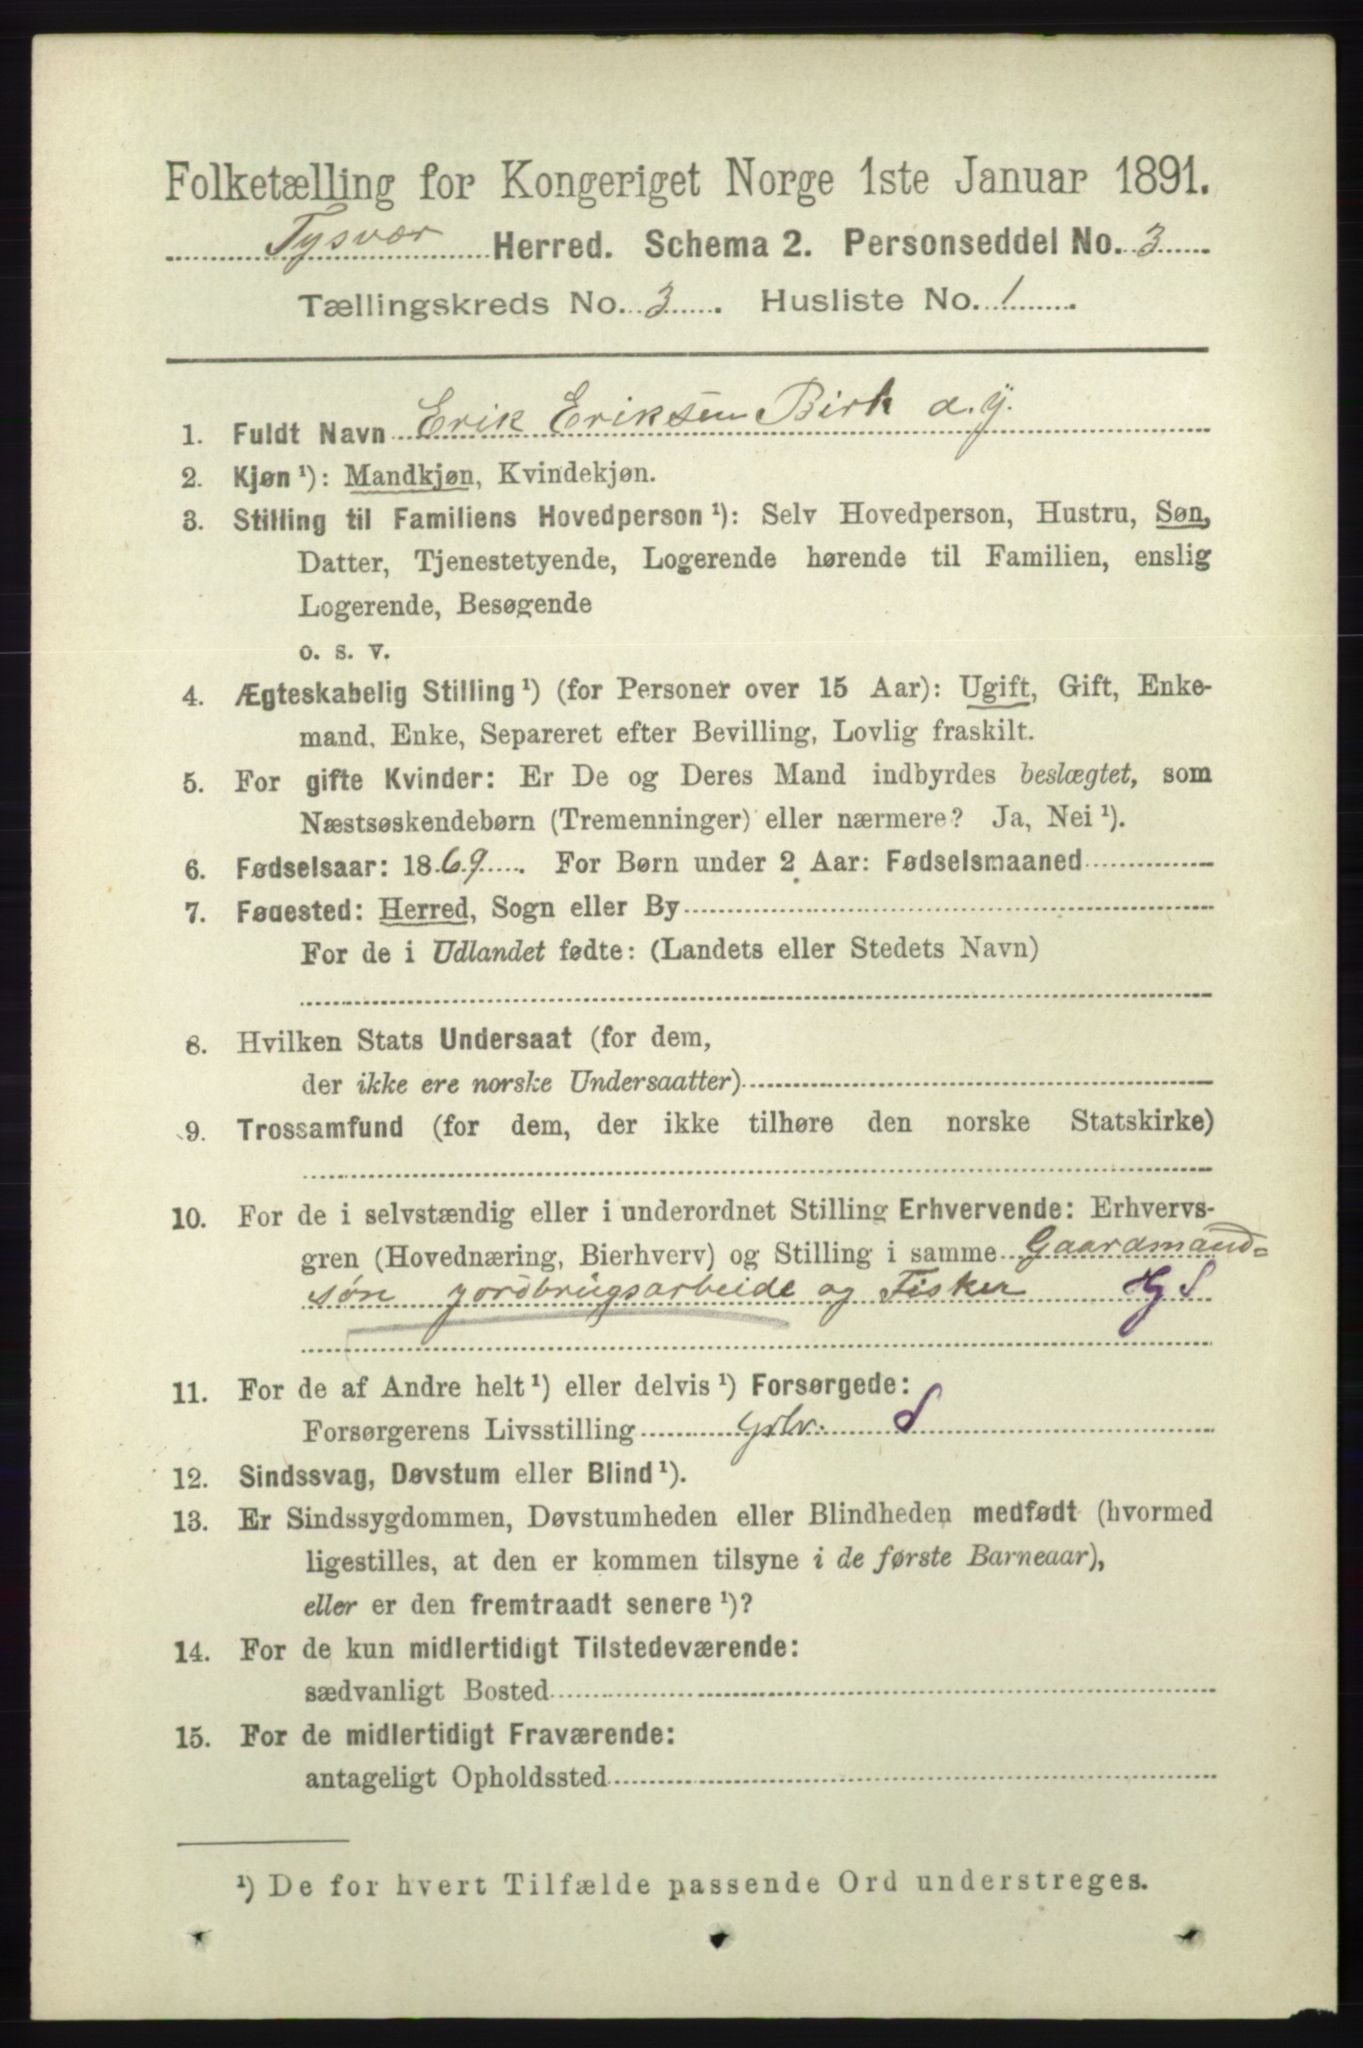 Folketælling for Kongeriget Norge 1ste Januar 1891.
Tysvær Herred. Schema 2. Personseddel No. 3
Tællingskreds No. 3. Husliste No. 1.
1. Fuldt Navn Erik Eriksen Birk d. y.
2. Kjøn ¹): Mandkjøn, Kvindekjøn.
3. Stilling til Familiens Hovedperson ¹): Selv Hovedperson, Hustru, Søn,
Datter, Tjenestetyende, Logerende hørende til Familien, enslig
Logerende, Besøgende
o. s. v.
4. Ægteskabelig Stilling ¹) (for Personer over 15 Aar): Ugift, Gift, Enke-
mand, Enke, Separeret efter Bevilling, Lovlig fraskilt.
5. For gifte Kvinder: Er De og Deres Mand indbyrdes beslægtet, som
Næstsøskendebørn (Tremenninger) eller nærmere? Ja, Nei ¹).
6. Fødselsaar: 1869. For Børn under 2 Aar: Fødselsmaaned
7. Fødested: Herred, Sogn eller By
For de i Udlandet fødte: (Landets eller Stedets Navn)
8. Hvilken Stats Undersaat (for dem,
der ikke ere norske Undersaatter)
9. Trossamfund (for dem, der ikke tilhøre den norske Statskirke)
10. For de i selvstændig eller i underordnet Stilling Erhvervende: Erhvervs-
gren (Hovednæring, Bierhverv) og Stilling i samme Gaardmand-
søn jordbrugsarbeide og Fisker HG S
11. For de af Andre helt ¹) eller delvis ¹) Forsørgede:
Forsørgerens Livsstilling S
12. Sindssvag, Døvstum eller Blind ¹).
13. Er Sindssygdommen, Døvstumheden eller Blindheden medfødt (hvormed
ligestilles, at den er kommen tilsyne i de første Barneaar),
eller er den fremtraadt senere ¹)?
14. For de kun midlertidigt Tilstedeværende:
sædvanligt Bosted
15. For de midlertidigt Fraværende:
antageligt Opholdssted
¹) De for hvert Tilfælde passende Ord understreges.